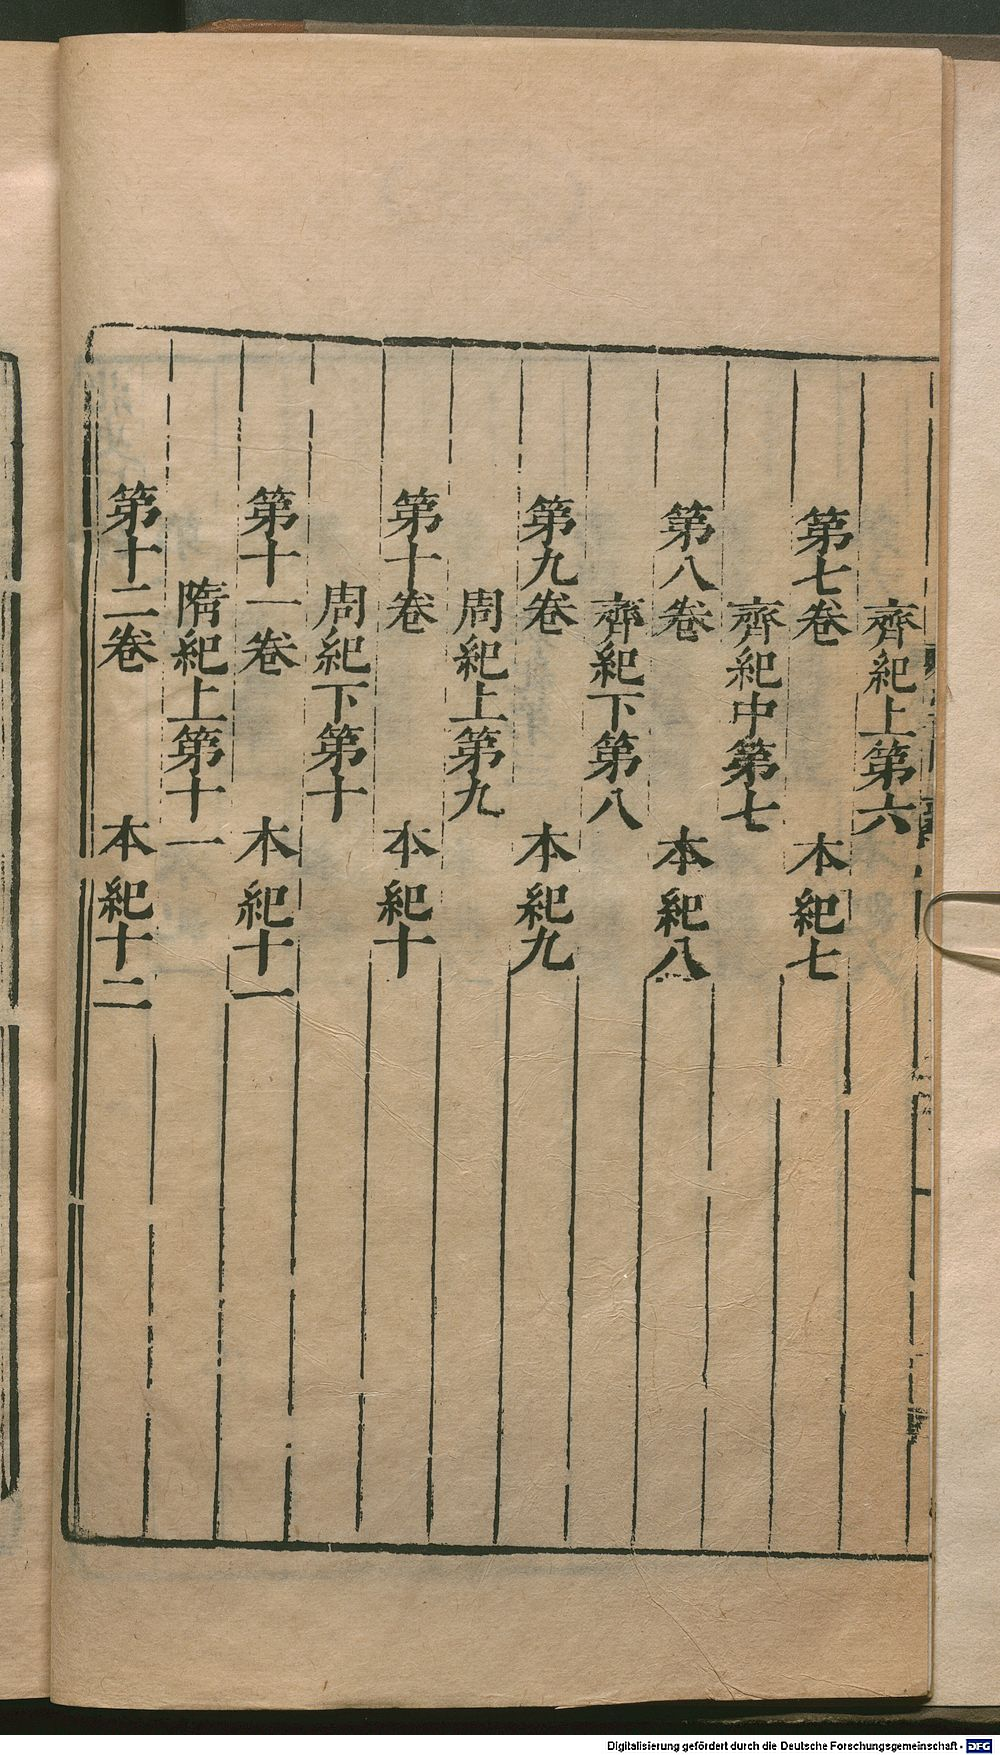 齊紀上第六
第七卷 本紀七
齊紀中第七
第八卷 本紀八
齊紀下第八
第九卷 本紀九
周紀上第九
第十卷 本紀十
周紀下第十
第十一卷 本紀十一
隋紀上第十一
第十二卷 本紀十二
Digitalisierung gefördert durch die Deutsche Forschungsgemeinschaft - DFG